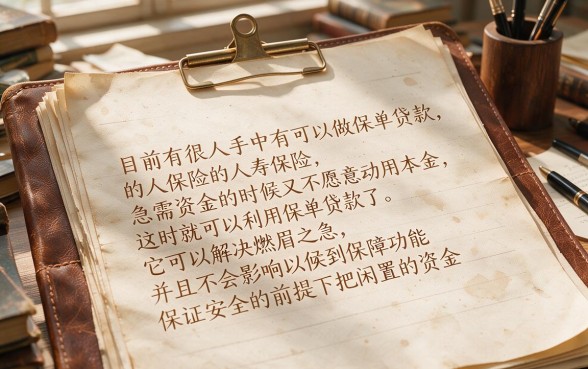 目前有很人手中有可以做保单贷款，
的人保险的人寿保险，
急需资金的时候又不愿意动用本金，
这时就可以利用保单贷款了。
它可以解决燃眉之急，
并且不会影响以候到保障功能
保证安全的前提下把闲置的资金